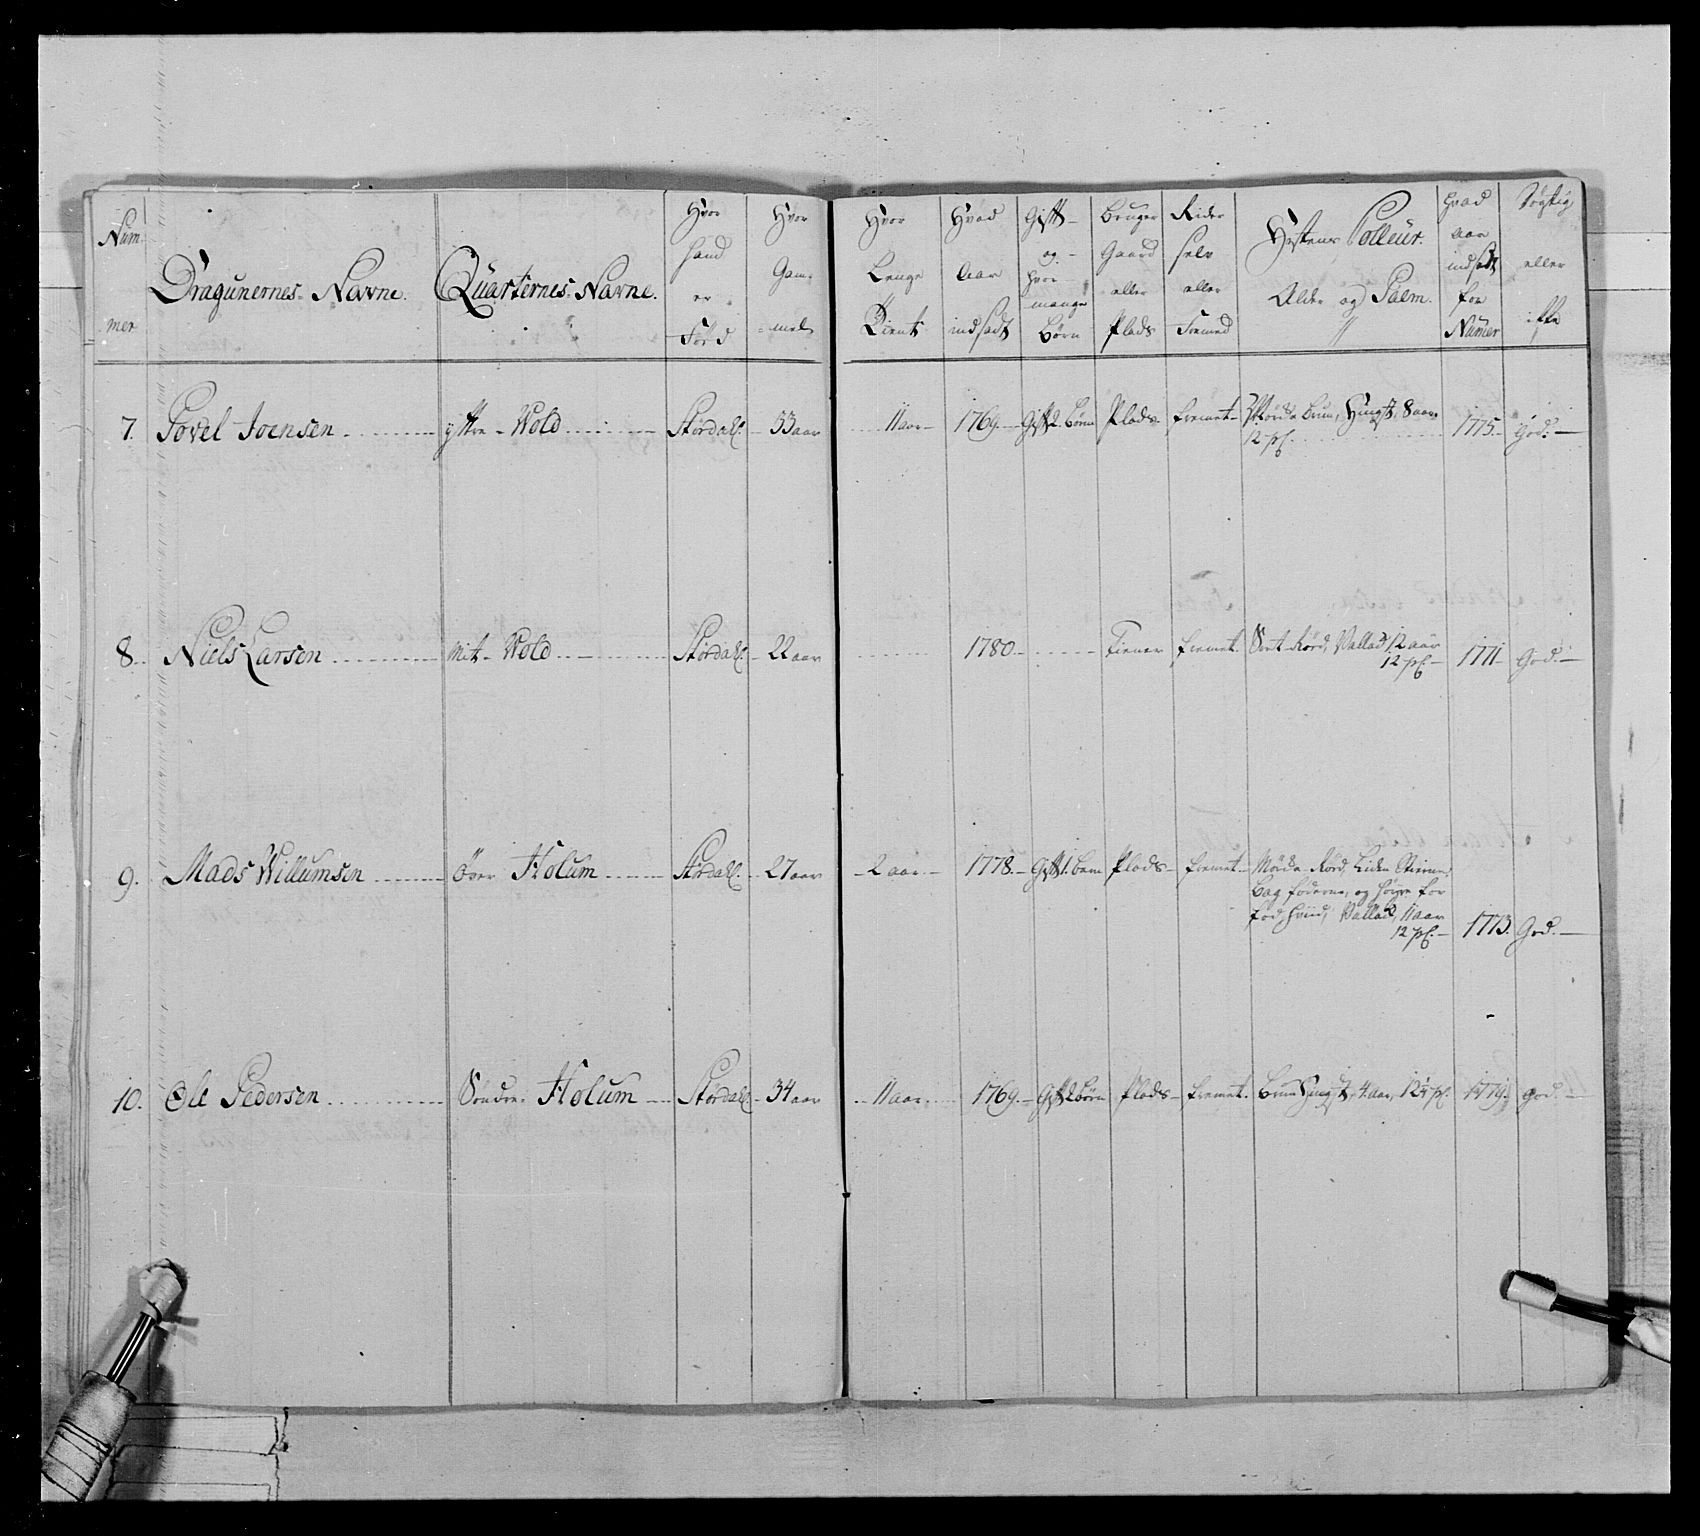 Num mer
Dragunernes Navne.
Quarternes Navne.
Hvor hand er Född
Hvor Gam= =mel
Hvor Lenge Tient
Hvad Aar indsadt
Gift og hvor mange Börn
Bruger Gaard eller Plads
Rider selv eller Fremed
Hestens Colleur. Alder og Palm.
Hvad aar indsadt for Numer
Dygtig eller ikke
7. Povel Joensen yttre Wold Stördal. 33 aar 11 aar 1769. Gift 2 Börn Plads fremet Mörk Brun, Hingst, 8 aar 1775. God.
12 pl.
8. Niels Larsen Mit Wold Stördal. 22 aar 1780. Tiener fremet. Sort Röd, Vallad 12 aar 1771 God.
12 pl.
9. Mads Willumsen Över Holum Stördal. 27 aar 2 aar 1778. Gift 1. barn Plads fremet Mörk Röd, Liden Stierne,
bag föderne, og höire for
fod hviid, Vallad, 11 aar
12 pl. 1773. God.
10. Ole Pedersen Söndre Holum Stördal 34 aar 11 aar. 1769. Gift 2 börn Plads fremet. Brun Hingst, 4 aar, 12 pl. 1779. God.